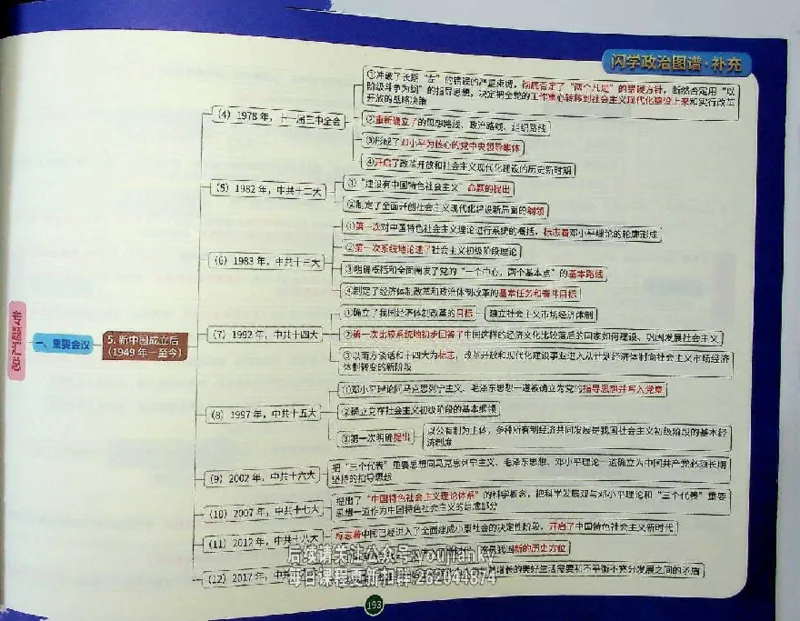 闪学政治图谱·补充
①冲破了长期“左”的错误的严重束缚，彻底否定了“两个凡是”的错误方针，断然否定用“以
阶级斗争为纲”的指导思想，决定把全党的工作重心转移到社会主义现代化建设上来和实行改革
开放的战略决策
(4) 1978年，十一届三中全会
②重新确立了的思想路线、政治路线、组织路线
③形成了邓小平为核心的党中央领导集体
④开启了改革开放和社会主义现代化建设的历史新时期
(5) 1982年，中共十二大
①“建设有中国特色社会主义”命题的提出
②制定了全面开创社会主义现代化建设新局面的纲领
(6) 1983年，中共十三大
①第一次对中国特色社会主义理论进行系统的概括，标志着邓小平理论的轮廓形成
②第一次系统地论述了社会主义初级阶段理论
③明确概括和全面阐发了党的“一个中心，两个基本点”的基本路线
④制定了经济体制改革和政治体制改革的基本任务和奋斗目标
专题汇总
一、重要会议
5. 新中国成立后
(1949年—至今)
(7) 1992年，中共十四大
①确立了我国经济体制改革的目标
建立社会主义市场经济体制
②第一次比较系统地初步回答了中国这样的经济文化比较落后的国家如何建设、巩固发展社会主义
③以南方谈话和十四大为标志，改革开放和现代化建设事业进入从计划经济体制向社会主义市场经济
体制转变的新阶段
(8) 1997年，中共十五大
①邓小平理论同马克思列宁主义、毛泽东思想一道被确立为党的指导思想并写入党章
②确立党在社会主义初级阶段的基本纲领
③第一次明确提出
以公有制为主体，多种所有制经济共同发展是我国社会主义初级阶段的基本经
济制度
(9) 2002年，中共十六大
把“三个代表”重要思想同马克思列宁主义、毛泽东思想、邓小平理论一道确立为中国共产党必须长期
坚持的指导思想
(10) 2007年，中共十七大
提出了“中国特色社会主义理论体系”的科学概念，把科学发展观与邓小平理论和“三个代表”重要
思想一道作为中国特色社会主义的组成部分
(11) 2012年，中共十八大
标志着中国已经进入了全面建成小康社会的决定性阶段，开启了中国特色社会主义新时代
我国新的历史方位
(12) 2017年，中共
增长的美好生活需要和不平衡不充分发展之间的矛盾
后续请关注公众号:youjiankv
每日课程更新扣群:262044874
193